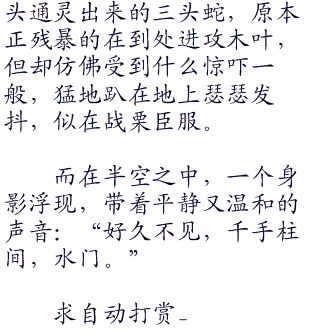 头通灵出来的三头蛇，原本
正残暴的在到处进攻木叶，
但却仿佛受到什么惊吓一
般，猛地趴在地上瑟瑟发
抖，似在战栗臣服。
而在半空之中，一个身
影浮现，带着平静又温和的
声音：“好久不见，千手柱
间，水门。”
求自动打赏_